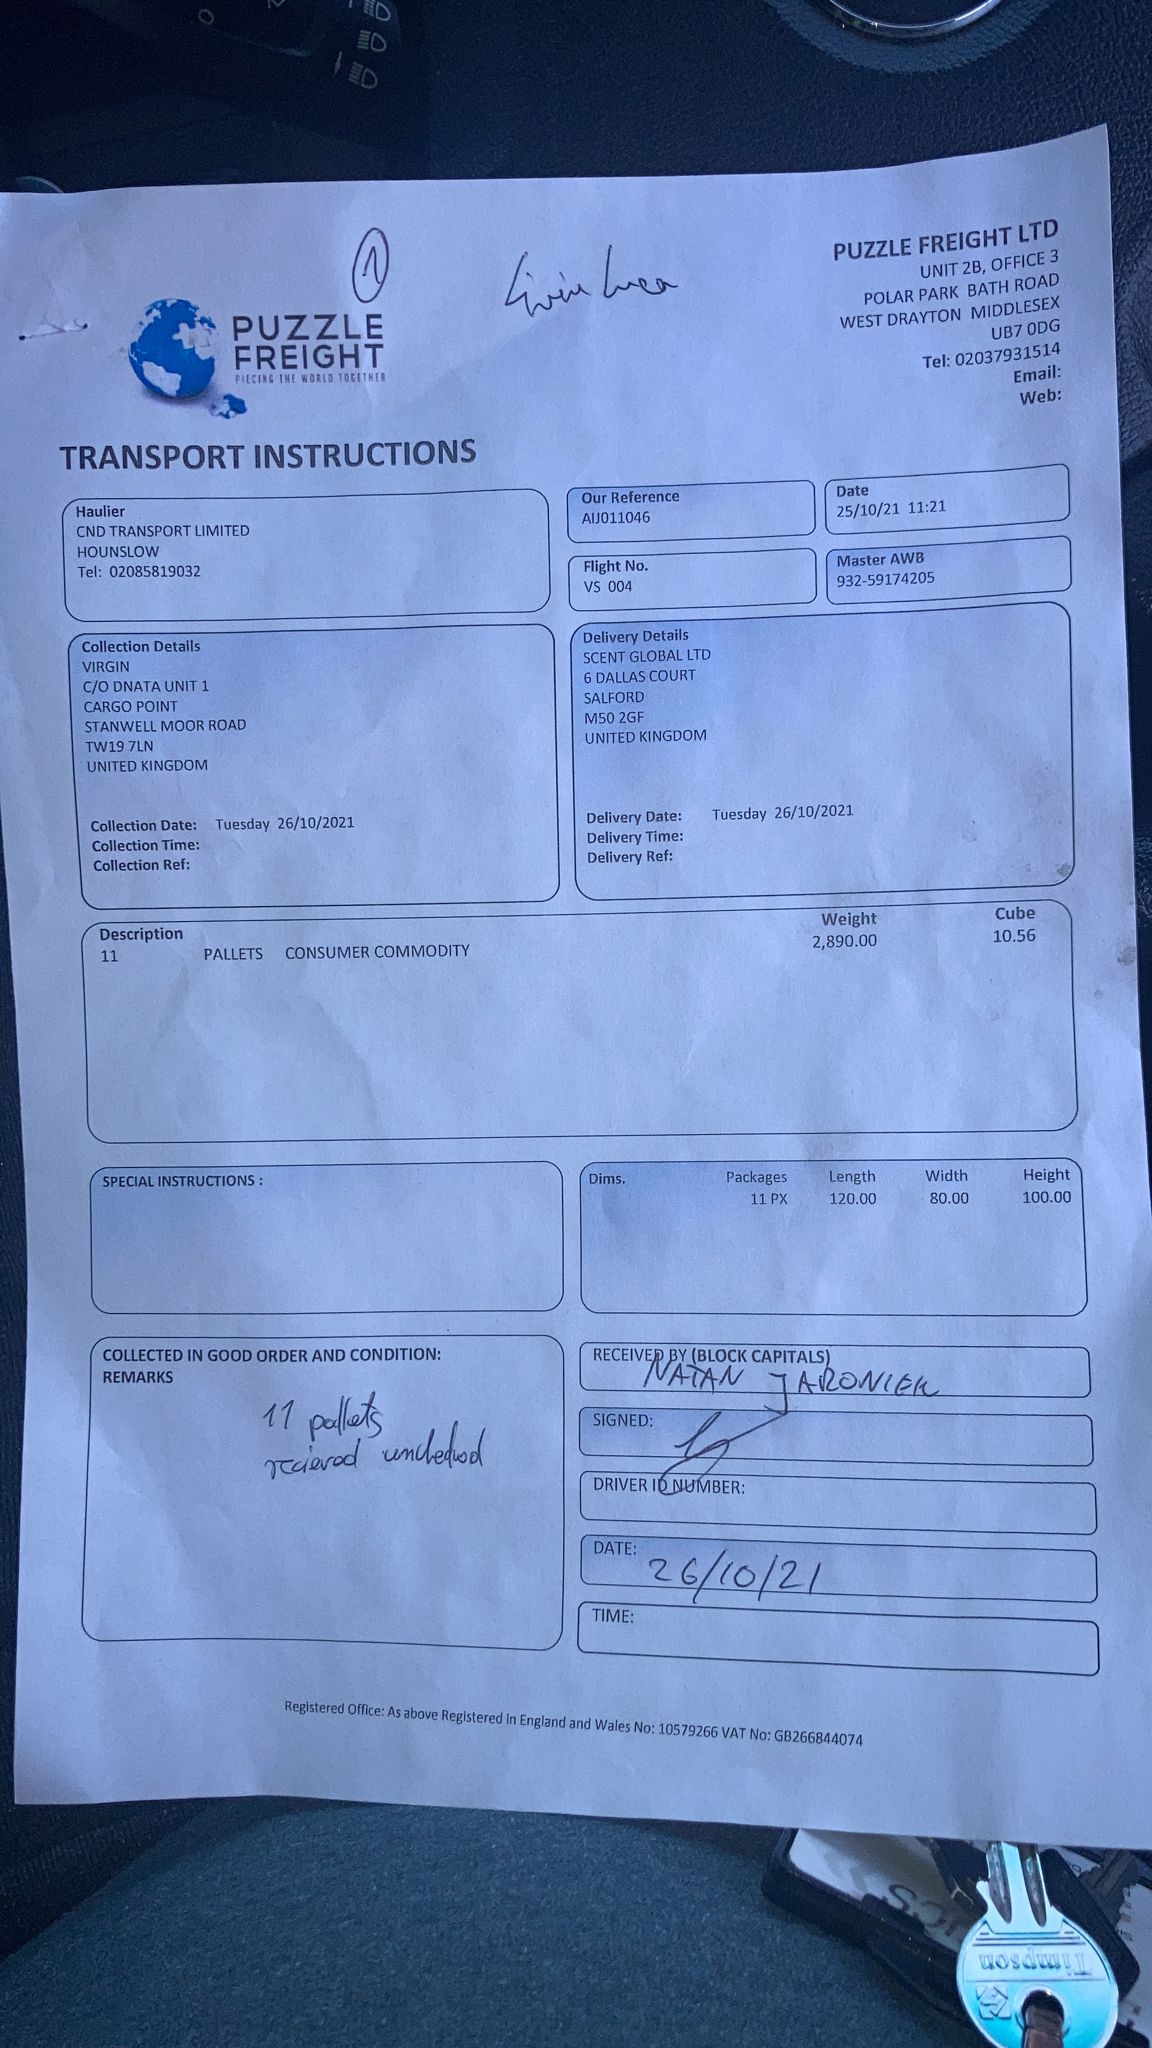 1
PUZZLE FREIGHT LTD
UNIT 2B, OFFICE 3
POLAR PARK BATH ROAD
WEST DRAYTON MIDDLESEX
UB7 0DG
Tel: 02037931514
Email:
Web:
PUZZLE
FREIGHT
PIECING THE WORLD TOGETHER
TRANSPORT INSTRUCTIONS
Haulier
CND TRANSPORT LIMITED
HOUNSLOW
Tel: 02085819032
Our Reference
AIJ011046
Date
25/10/21 11:21
Flight No.
VS 004
Master AWB
932-59174205
Collection Details
VIRGIN
C/O DNATA UNIT 1
CARGO POINT
STANWELL MOOR ROAD
TW19 7LN
UNITED KINGDOM
Collection Date: Tuesday 26/10/2021
Collection Time:
Collection Ref:
Delivery Details
SCENT GLOBAL LTD
6 DALLAS COURT
SALFORD
M50 2GF
UNITED KINGDOM
Delivery Date: Tuesday 26/10/2021
Delivery Time:
Delivery Ref:
Description Weight Cube
11 PALLETS CONSUMER COMMODITY 2,890.00 10.56
SPECIAL INSTRUCTIONS :
Dims. Packages Length Width Height
11 PX 120.00 80.00 100.00
COLLECTED IN GOOD ORDER AND CONDITION:
REMARKS
11 pallets
recieved
RECEIVED BY (BLOCK CAPITALS)
NATAN JARONIEK
SIGNED:
DRIVER ID NUMBER:
DATE: 26/10/21
TIME:
Registered Office: As above Registered In England and Wales No: 10579266 VAT No: GB266844074
Timpson